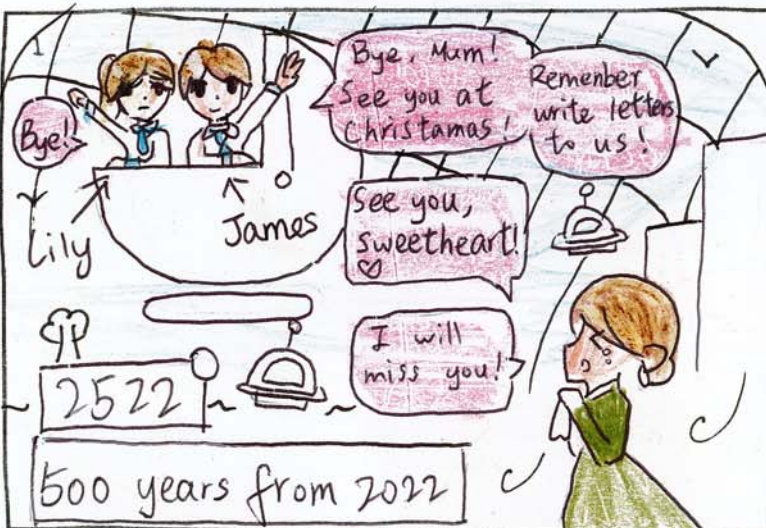 1
Bye!
Bye, Mum!
See you at
Christamas!
Remenber
write letters
to us!
Lily
James
See you,
sweetheart!
♡
I will
miss you!
2522
500 years from 2022